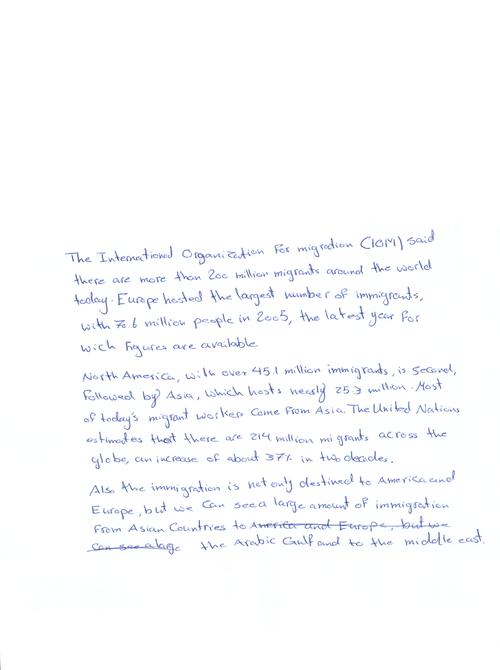 The International Organization For migration (IOM) said
there are more than 200 million migrants around the world
today. Europe hosted the largest number of immigrants,
with 70.6 million people in 2005, the latest year For
wich Figures are available
North America, with over 45.1 million immigrants, is Second,
Followed by Asia, which hosts nearly 25.3 million. Most
of today's migrant workers Come From Asia. The United Nations
estimates that there are 214 million migrants across the
globe, an increase of about 37% in two decades.
Also the immigration is not only destined to America and
Europe, but we Can see a large amount of immigration
From Asian Countries to America and Europe, but we
Can see a large the Arabic Gulf and to the middle east.